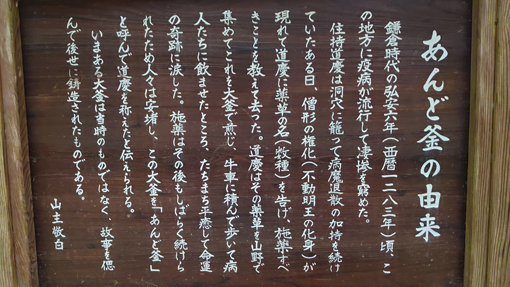 あんど釜の由来
鎌倉時代の弘安六年（西暦一二八三年）頃、こ
の地方に疫病が流行して凄惨を窮めた。
住持道慶は洞穴に籠って病魔退散の加持を続け
ていたある日、僧形の権化（不動明王の化身）が
現れ、道慶に薬草の名（数種）を告げ、施薬すべ
きことを教えて去った。道慶はその薬草を山野で
集めてこれを大釜で煎じ、牛車に積んで歩いて病
人たちに飲ませたところ、たちまち平癒して命運
の奇跡に涙した。施薬はその後もしばらく続けら
れたため人々は安堵し、この大釜を「あんど釜」
と呼んで道慶を称えたと伝えられる。
いまある大釜は当時のものではなく、故事を偲
んで後世に鋳造されたものである。
山主敬白